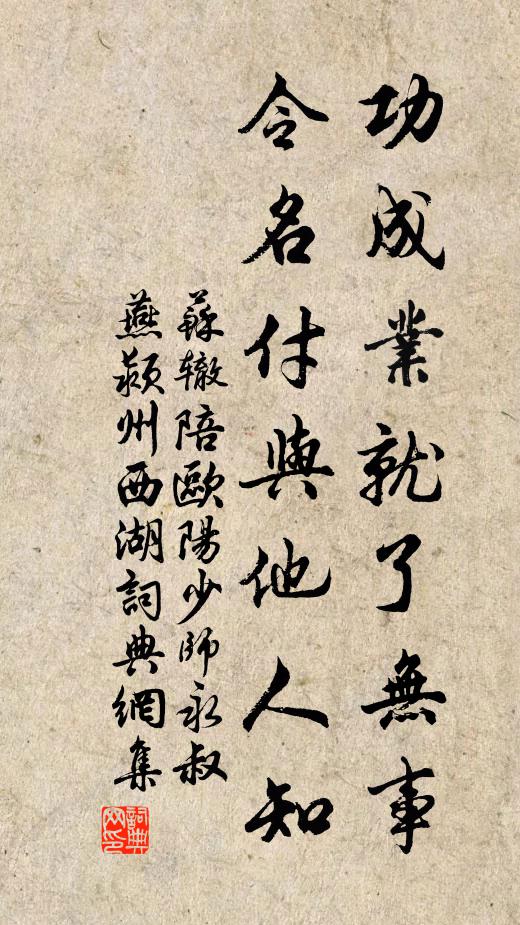 功成業就了無事
令名付與他人知
蘇轍陪歐陽少師永叔
燕潁州西湖詞典網集
詞典网印